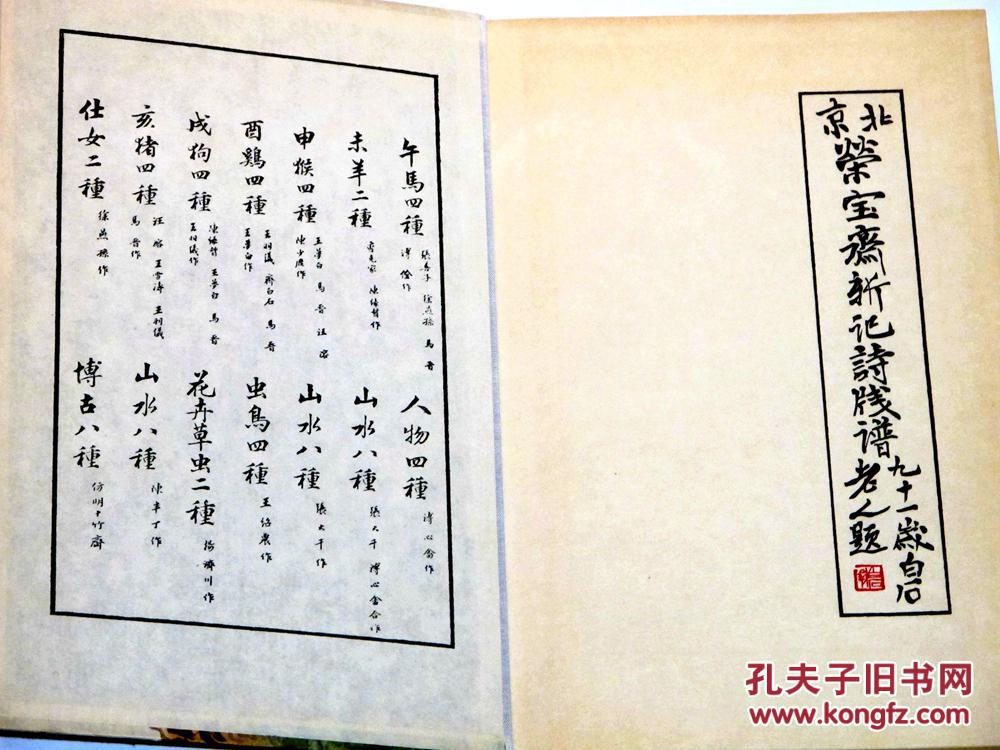 北京榮宝齋新记詩牋谱
九十一歲白石老人题
午馬四種 張善子 徐燕孫 馬晋 溥佺作
未羊二種 陳緣督作
申猴四種 王夢白 馬晋 汪溶 陳少鹿作
酉鷄四種 王羽儀 齊白石 馬晋 王夢白作
戌狗四種 陳緣督 王夢白 馬晋 王羽儀作
亥猪四種 汪溶 王雪濤 王羽儀 馬晋作
仕女二種 徐燕孫作
人物四種 溥心畬作
山水八種 張大千 溥心畬合作
山水八種 張大千作
虫鳥四種 王作
花卉草虫二種 濟川作
山水八種 陳半丁作
博古八種 仿明十竹齋
孔夫子旧书网
www.kongfz.com